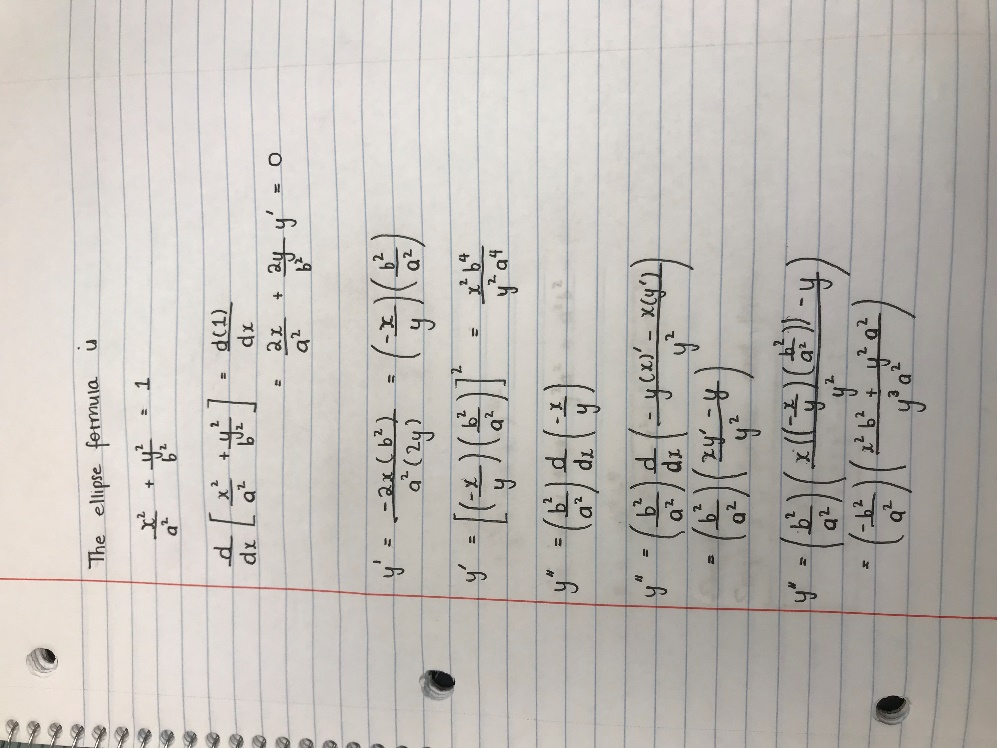 The ellipse formula is
x²/a² + y²/b² = 1
d/dx [x²/a² + y²/b²] = d(1)/dx
= 2x/a² + 2y/b² y' = 0
y' = -2x(b²)/a²(2y) = (-x/y)(b²/a²)
y' = [(-x/y)(b²/a²)]² = x²b⁴/y²a⁴
y'' = (b²/a²) d/dx (-x/y)
y'' = (b²/a²) d/dx (-y(x)' - x(y')/y²)
= (b²/a²)(xy' - y/y²)
y'' = (b²/a²)(x((-x/y)(b²/a²)) - y/y²)
= (-b²/a²)(x²b² + y²a²/y³a²)